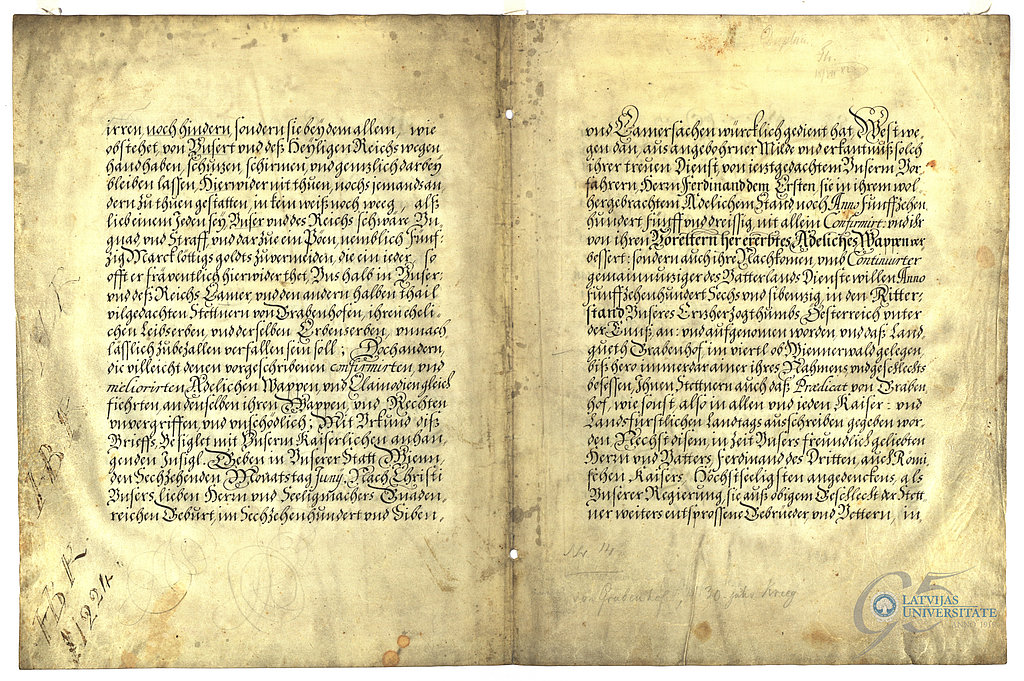 irren, noch hindern, sondern sie bey dem allem, wie
obstehet, von Unsert und deß Heyligen Reichs wegen
handhaben, schüzen, schirmen, und genzlich darbey
bleiben lassen, Hierwider nit thuen, noch jemands an
dern zu thuen gestatten, in kein weiß noch weeg, alß
lieb einem Jeden sey, Unser vnd des Reichs schwäre Vn
gnad, vnd Straff, vnd darzue ein Poen, nemblich Fünf:
zig Marck löttigs goldts zuvermeiden, die ein ieder, so
offt er fräventlich hierwider thet, Uns halb in Unser:
und deß Reichs Camer, vnd den andern halben thail
vilgedachten Stettnern von Grabenhofen, ihren eheli:
chen Leibserben, vnd derselben Erbenserben, vnnach
lässlich zubezallen verfallen sein soll; Doch andern,
die villeicht denen vorgeschribenen confirmirten, vnd
meliorirten, Adelichen Wappen, vnd Clainodien gleich
fiehrten, an denselben ihren Wappen, vnd Rechten
vnvergriffen, vnd vnschödlich; Mit Urkund diß
Brieffs, Besiglet mit Unserm Kaiserlichen anhan,
genden Insigl. Geben in Unserer Statt Wienn,
den Sechzehenden Monatstag Junij. Nach Christi
Unsers lieben Herrn und Seeligmachers Gnaden,
reichen Geburt, im Sechzehenhundert vnd Siben,
FBK
1224
vnd Camersachen würcklich gedient hat, West we,
gen dan, aus angebohrner Milde vnd erkantnuß solch
ihrer treuen Dienst, von ieztgedachtem Unserm Vor,
fahrern, Herrn Ferdinand dem Ersten, sie in ihrem wol,
hergebrachtem Adelichem Stand noch Anno fünffzehen,
hundert, fünff vnd dreissig, mit allein Confirmirt: vnd ihr
von ihren Vöreltern herererbtes Adeliches Wappen ver,
bessert: sondern auch ihre Nachkomen, vmb Continuirter
gemainnuziger des Vatterlands Dienste willen Anno
fünffzehenhundert Sechs vnd sibenzig, in den Ritter:
stand Unseres Erzherzogthumbs Oesterreich vnter
der Ennß an: vnd aufgenomen worden, vnd daß Land,
gueth Grabenhof, im viertl ob Wiennerwald gelegen,
bißhero immerdar ainer ihres Nahmens vnd geschlechts
besessen, Ihnen Stettnern auch daß Prædicat von Graben,
hof, wie sonst also in allen vnd jeden Kaiser: vnd
Landsfürstlichen Landtags ausschreiben gegeben wor,
den, Nechst disem, in Zeit Unsers freundlich geliebten
Herrn vnd Vatters, Ferdinand des Dritten, auch Römi,
schen Kaisers, Höchstseeligsten angedenckens, als
Unserer Regierung, sie auß obigem Geschlecht der Stett,
ner weiters entsprossene Gebrüeder, vnd Vettern, in,
Nr. 14
von Grabenhof 30 jähr Krieg
95
LATVIJAS
UNIVERSITĀTE
ANNO 1919